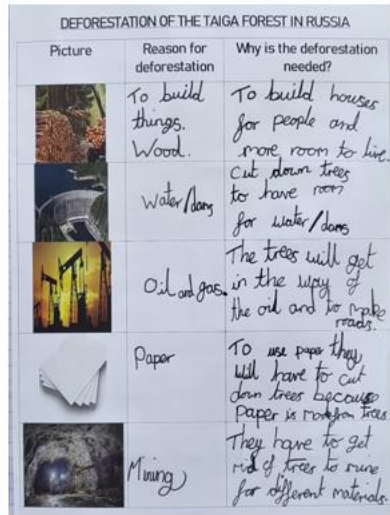 DEFORESTATION OF THE TAIGA FOREST IN RUSSIA
Picture
Reason for
deforestation
Why is the deforestation
needed?
To build
things.
Wood.
To build houses
for people and
more room to live.
Water/dams
Cut down trees
to have room
for water/dams
Oil and gas.
The trees will get
in the way of
the oil and to make
roads.
Paper
To use paper they
will have to cut
down trees because
Paper is from trees
Mining
They have to get
rid of trees to mine
for different materials.